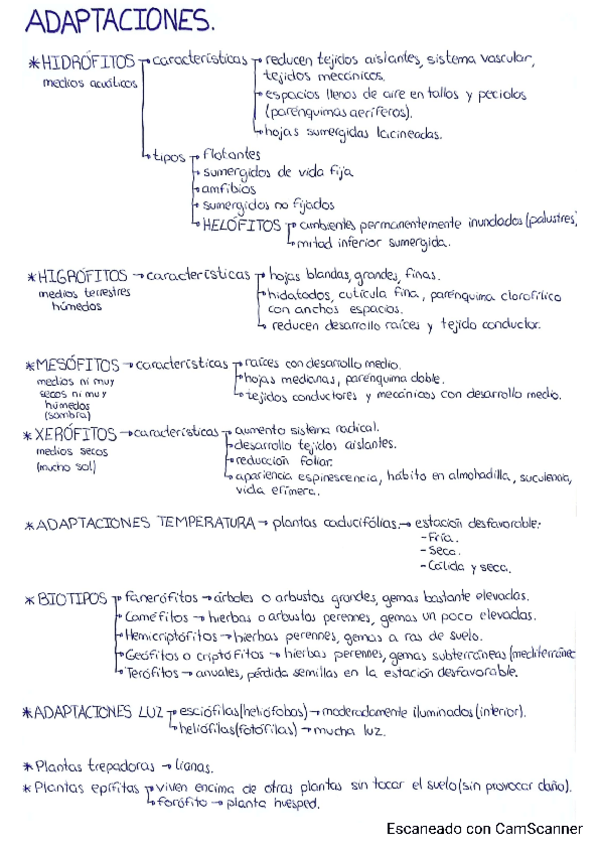 ADAPTACIONES.
*HIDRÓFITOS características reducen tejidos aislantes, sistema vascular,
medios acuáticos tejidos mecánicos.
espacios llenos de aire en tallos y peciolos
(parénquimas aeríferos).
hojas sumergidas lacineadas.
tipos flotantes
sumergidos de vida fija
anfibios
sumergidos no fijados
HELÓFITOS ambientes permanentemente inundados (palustres)
mitad inferior sumergida.
*HIGRÓFITOS → características hojas blandas, grandes, finas.
medios terrestres hidatodos, cutícula fina, parénquima clorofílico
húmedos con anchos espacios.
reducen desarrollo raíces y tejido conductor.
*MESÓFITOS → características raíces con desarrollo medio.
medios ni muy hojas medianas, parénquima doble.
secos ni muy tejidos conductores y mecánicos con desarrollo medio.
húmedos
(sombra)
*XERÓFITOS → características aumento sistema radical.
medios secos desarrollo tejidos aislantes.
(mucho sol) reducción foliar.
apariencia espinescencia, hábito en almohadilla, suculencia,
vida efímera.
*ADAPTACIONES TEMPERATURA → plantas caducifólias. → estación desfavorable:
-Fría.
-Seca.
-Cálida y seca.
*BIOTIPOS fanerófitos → árboles o arbustos grandes, gemas bastante elevadas.
Caméfitos → hierbas o arbustos perennes, gemas un poco elevadas.
Hemicriptófitos → hierbas perennes, gemas a ras de suelo.
Geófitos o criptófitos → hierbas perennes, gemas subterráneas (mediterráneo
Terófitos → anuales, pérdida semillas en la estación desfavorable.
*ADAPTACIONES LUZ esciófilas (heliófobas) → moderadamente iluminados (interior).
heliófilas (fotófilas) → mucha luz.
*Plantas trepadoras → lianas.
*Plantas epífitas viven encima de otras plantas sin tocar el suelo (sin provocar daño).
forófito → planta huesped.
Escaneado con CamScanner